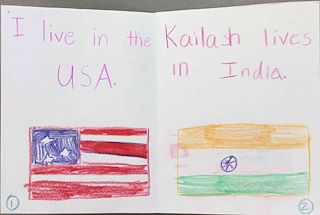 I live in the
USA.
Kailash lives
in India.
1
2